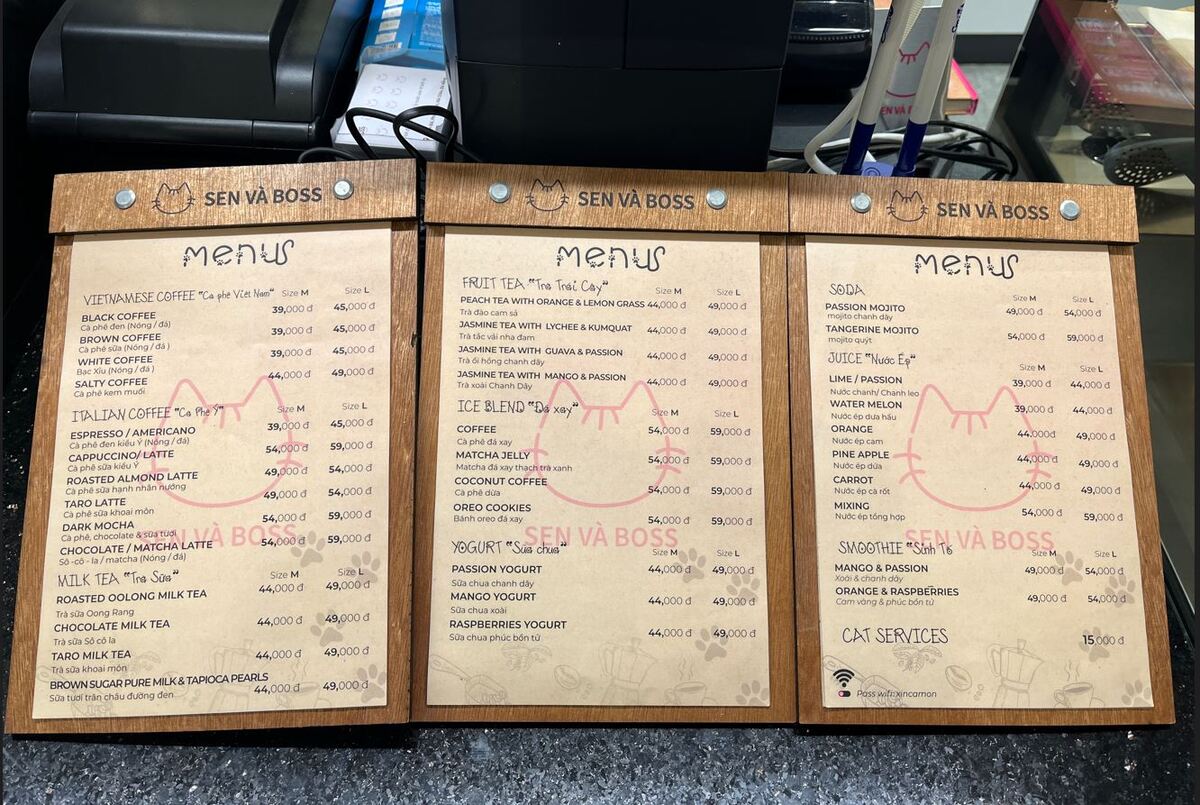 SEN VÀ BOSS
menus
VIETNAMESE COFFEE "Cà phê Việt Nam" Size M Size L
BLACK COFFEE 39,000 đ 45,000 đ
Cà phê đen (Nóng / đá)
BROWN COFFEE 39,000 đ 45,000 đ
Cà phê sữa (Nóng / đá )
WHITE COFFEE 39,000 đ 45,000 đ
Bạc Xỉu (Nóng / đá )
SALTY COFFEE 44,000 đ 49,000 đ
Cà phê kem muối
ITALIAN COFFEE "Cà Phê Ý" Size M Size L
ESPRESSO / AMERICANO 39,000 đ 45,000 đ
Cà phê đen kiểu Ý (Nóng / đá)
CAPPUCCINO/ LATTE 54,000 đ 59,000 đ
Cà phê sữa kiểu Ý
ROASTED ALMOND LATTE 49,000 đ 54,000 đ
Cà phê sữa hạnh nhân nướng
TARO LATTE 49,000 đ 54,000 đ
Cà phê sữa khoai môn
DARK MOCHA 54,000 đ 59,000 đ
Cà phê, chocolate & sữa tươi
CHOCOLATE / MATCHA LATTE 54,000 đ 59,000 đ
Sô -cô - la / matcha (Nóng / đá)
SEN VÀ BOSS
MILK TEA "Trà Sữa" Size M Size L
ROASTED OOLONG MILK TEA 44,000 đ 49,000 đ
Trà sữa Oong Rang
CHOCOLATE MILK TEA 44,000 đ 49,000 đ
Trà sữa Sô cô la
TARO MILK TEA 44,000 đ 49,000 đ
Trà sữa khoai môn
BROWN SUGAR PURE MILK & TAPIOCA PEARLS 44,000 đ 49,000 đ
Sữa tươi trân châu đường đen
SEN VÀ BOSS
menus
FRUIT TEA "Trà Trái Cây" Size M Size L
PEACH TEA WITH ORANGE & LEMON GRASS 44,000 đ 49,000 đ
Trà đào cam sả
JASMINE TEA WITH LYCHEE & KUMQUAT 44,000 đ 49,000 đ
Trà tắc vải nha đam
JASMINE TEA WITH GUAVA & PASSION 44,000 đ 49,000 đ
Trà ổi hồng chanh dây
JASMINE TEA WITH MANGO & PASSION 44,000 đ 49,000 đ
Trà xoài Chanh Dây
ICE BLEND "Đá xay" Size M Size L
COFFEE 54,000 đ 59,000 đ
Cà phê đá xay
MATCHA JELLY 54,000 đ 59,000 đ
Matcha đá xay thạch trà xanh
COCONUT COFFEE 54,000 đ 59,000 đ
Cà phê dừa
OREO COOKIES 54,000 đ 59,000 đ
Bánh oreo đá xay
SEN VÀ BOSS
YOGURT "Sữa chua" Size M Size L
PASSION YOGURT 44,000 đ 49,000 đ
Sữa chua chanh dây
MANGO YOGURT 44,000 đ 49,000 đ
Sữa chua xoài
RASPBERRIES YOGURT 44,000 đ 49,000 đ
Sữa chua phúc bồn tử
SEN VÀ BOSS
menus
SODA Size M Size L
PASSION MOJITO 49,000 đ 54,000 đ
mojito chanh dây
TANGERINE MOJITO 54,000 đ 59,000 đ
mojito quýt
JUICE "Nước Ép" Size M Size L
LIME / PASSION 39,000 đ 44,000 đ
Nước chanh/ Chanh leo
WATER MELON 39,000 đ 44,000 đ
Nước ép dưa hấu
ORANGE 44.000đ 49,000đ
Nước ép cam
PINE APPLE 44,000 đ 49,000 đ
Nước ép dứa
CARROT 44,000 đ 49,000 đ
Nước ép cà rốt
MIXING 54,000 đ 59,000 đ
Nước ép tổng hợp
SEN VÀ BOSS
SMOOTHIE "Sinh Tố Size M Size L
MANGO & PASSION 49,000 đ 54,000 đ
Xoài & chanh dây
ORANGE & RASPBERRIES 49,000 đ 54,000 đ
Cam vàng & phúc bồn tử
CAT SERVICES 15,000 đ
Pass wifi: xincamon